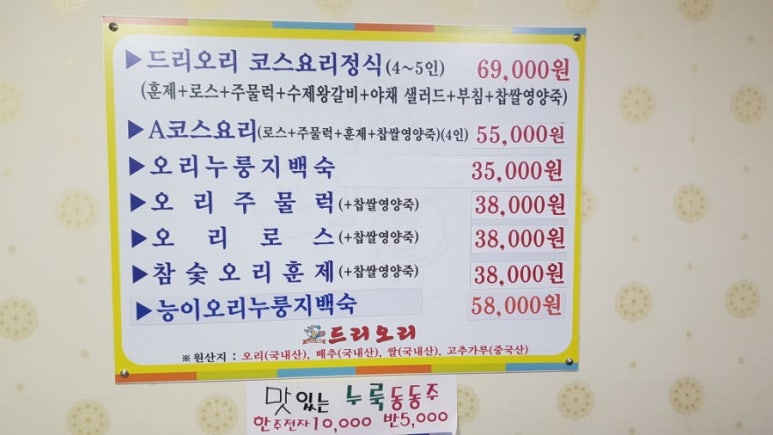 ▶드리오리 코스요리정식(4~5인) 69,000원
(훈제+로스+주물럭+수제왕갈비+야채 샐러드+부침+찹쌀영양죽)
▶A코스요리(로스+주물럭+훈제+찹쌀영양죽)(4인) 55,000원
▶오리누룽지백숙 35,000원
▶오리주물럭(+찹쌀영양죽) 38,000원
▶오리로스(+찹쌀영양죽) 38,000원
▶참숯오리훈제(+찹쌀영양죽) 38,000원
▶능이오리누룽지백숙 58,000원
드리오리
※원산지 : 오리(국내산), 배추(국내산), 쌀(국내산), 고추가루(중국산)
맛있는 누룩동동주
한주전자10,000 반5,000